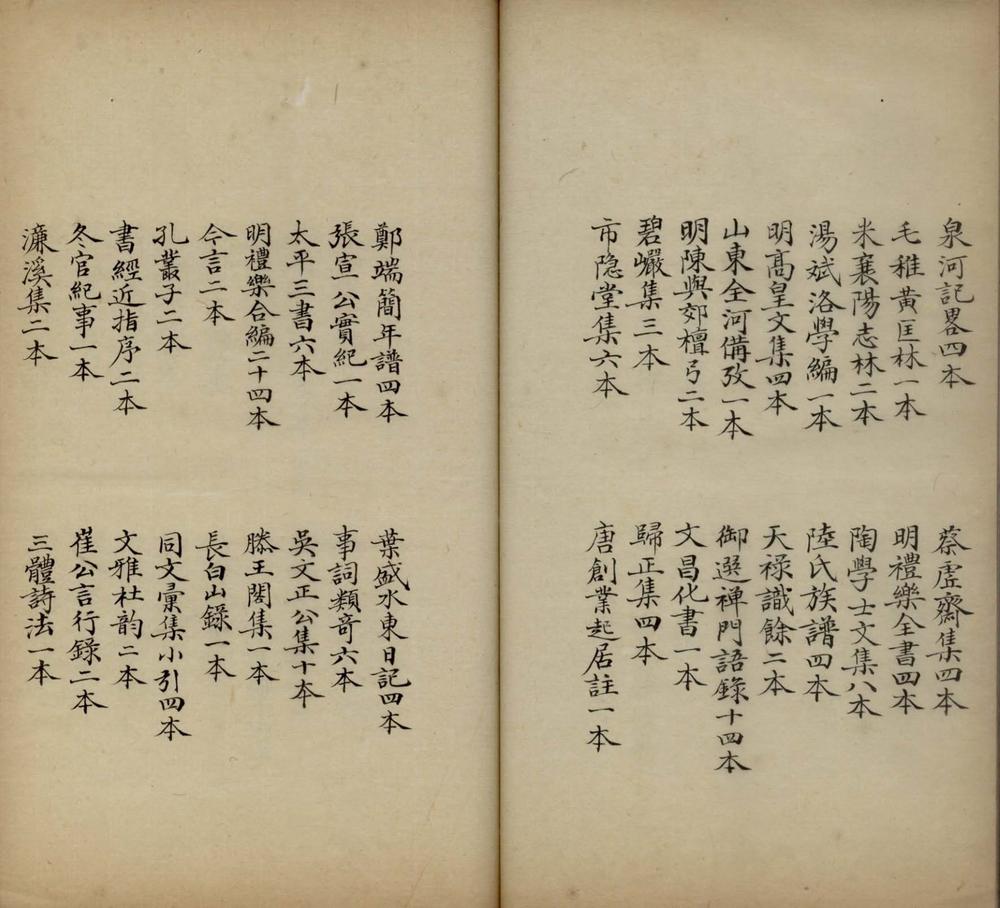 泉河記畧四本
蔡虛齋集四本
毛稚黃匡林一本
明禮樂全書四本
米襄陽志林二本
陶學士文集八本
湯斌洛學編一本
陸氏族譜四本
明髙皇文集四本
天祿識餘二本
山東全河備攷一本
御選禪門語錄十四本
明陳與郊檀弓二本
文昌化書一本
碧巖集三本
歸正集四本
市隐堂集六本
唐創業起居註一本
鄭端簡年譜四本
葉盛水東日記四本
張宣公實紀一本
事詞類竒六本
太平三書六本
吳文正公集十本
明禮樂合編二十四本
滕王閣集一本
今言二本
長白山錄一本
孔叢子二本
同文彚集小引四本
書經近指序二本
文雅杜韵二本
冬官紀事一本
崔公言行錄二本
濂溪集二本
三體詩法一本